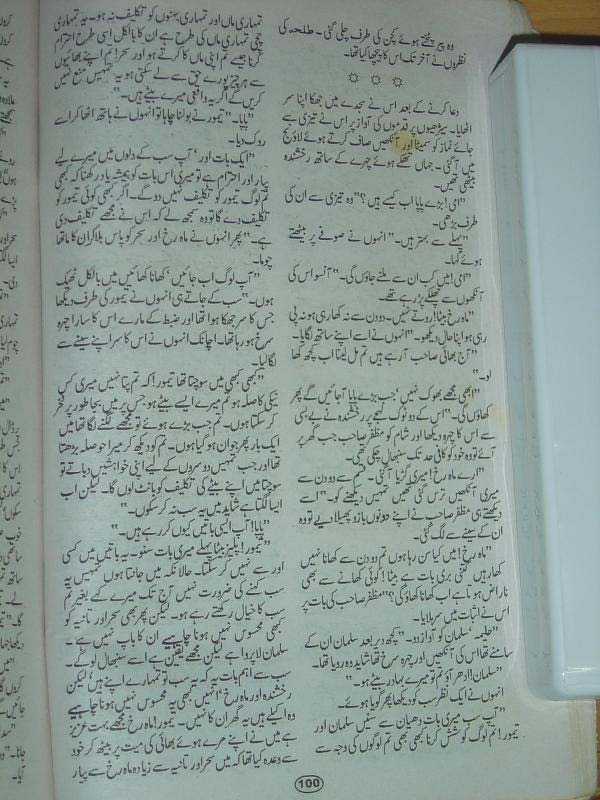 وہ پیر پٹختے ہوئے کچن کی طرف چلی گئی۔ طلحہ کی
نظروں نے آخر تک اس کا پیچھا کیا تھا۔
☼ ☼ ☼
دعا کرنے کے بعد اس نے سجدے میں جھکا اپنا سر
اٹھایا۔ سیڑھیوں پر قدموں کی آواز پر اس نے تیزی سے
جائے نماز کو سمیٹا اور آنکھیں صاف کرتے ہوئے لاؤنج
میں آگئی۔ جہاں تھکے ہوئے چہرے کے ساتھ رخشندہ
بیٹھی تھیں۔
"امی! بڑے پاپا اب کیسے ہیں؟" وہ تیزی سے ان کی
طرف بڑھی۔
"پہلے سے بہتر ہیں۔" انہوں نے صوفے پر بیٹھتے
ہوئے کہا۔
"امی! میں کب ان سے ملنے جاؤں گی۔" آنسو اس کی
آنکھوں سے چھلکے پڑ رہے تھے۔
"ماہ رخ بیٹا! روتے نہیں۔ دو دن سے نہ کھا رہی ہو نہ پی
رہی ہو اپنا حال دیکھو۔" انہوں نے اسے اپنے ساتھ لگایا۔
"آج بھائی صاحب آرہے ہیں تم مل لینا اب کچھ کھا
لو۔"
"ابھی مجھے بھوک نہیں، جب بڑے پاپا آجائیں گے پھر
کھاؤں گی۔" اس کے دو ٹوک لہجے پر رخشندہ نے بے بسی
سے اس کا چہرہ دیکھا اور شام کو مظفر صاحب جب گھر پر
آئے تو وہ خود کو کافی حد تک سنبھال چکی تھی۔
"ارے ماہ رخ! میری گڑیا آئی۔ تم سے دو دن سے
میری آنکھیں ترس گئی تھیں تمہیں دیکھنے کو۔" اسے
دیکھتے ہی مظفر صاحب نے اپنے دونوں بازو پھیلا دیے تو وہ
ان کے سینے سے لگ گئی۔
"ماہ رخ! میں کیا سن رہا ہوں تم دو دن سے کھانا نہیں
کھا رہیں کتنی بری بات ہے بیٹا! کوئی کھانے سے بھی
ناراض ہوتا ہے اب کھانا کھاؤ گی؟" مظفر صاحب کی بات پر
اس نے اثبات میں سر ہلایا۔
سلمان کو آواز دو۔" کچھ دیر بعد سلمان ان کے
سامنے تھا اس کی آنکھیں اور چہرہ سرخ تھا شاید وہ رویا تھا۔
"سلمان! ادھر آؤ تم تو میرے بہادر بیٹے ہو۔"
انہوں نے ایک نظر سب کو دیکھا پھر گویا ہوئے۔
"آپ سب میری بات دھیان سے سنیں سلمان اور
تیمور! تم لوگ کوشش کرنا کبھی بھی تم لوگوں کی وجہ سے
تمہاری ماں اور تمہاری بہنوں کو تکلیف نہ ہو۔ یہ تمہاری
چچی تمہاری ماں کی طرح ہے ان کا بالکل اسی طرح احترام
کرنا جیسے تم اپنی ماں کا کرتے ہو اور سحر! تم اپنے بھائیوں
سے ہر چیز پورے حق سے لے سکتی ہو یہ تمہیں منع نہیں
کریں گے اگر یہ واقعی میرے بیٹے ہیں۔"
"پاپا۔" تیمور نے بولنا چاہا تو انہوں نے ہاتھ اٹھا کر اسے
روک دیا۔
"ایک بات اور! آپ سب کے دلوں میں میرے لیے
پیار اور احترام ہے تو میری اس بات کو ہمیشہ یاد رکھنا کہ کبھی
تم لوگ تیمور کو تکلیف نہیں دو گے۔ اگر کبھی کوئی تیمور کو
تکلیف دے گا تو وہ سمجھ لے کہ اس نے مجھے تکلیف دی
ہے۔" پھر انہوں نے ماہ رخ اور سحر کو پاس بلا کر ان کا ماتھا
چوما۔
"آپ لوگ اب جائیں، کھانا کھائیں میں بالکل ٹھیک
ہوں۔" سب کے جاتے ہی انہوں نے تیمور کی طرف دیکھا
جس کا سر جھکا ہوا تھا اور ضبط کے مارے اس کا سارا چہرہ
سرخ ہو رہا تھا۔ اچانک انہوں نے اس کا سر اپنے سینے سے
لگا لیا۔
"کبھی کبھی میں سوچتا تھا تیمور! کہ تم پتا نہیں میری کس
نیکی کا صلہ ہو تم میرے ایسے بیٹے ہو جس پر میں بجا طور پر فخر
کر سکتا ہوں۔ تم جب بڑے ہوئے تو مجھے لگنے لگا تھا میں
ایک بار پھر جوان ہو گیا ہوں۔ تم کو دیکھ کر میرا حوصلہ بڑھتا
تھا اور جب تمہیں دوسروں کے لیے اپنی خواہشیں دباتے تو
سوچتا میں اپنے بیٹے کی تکلیف کو بانٹ لوں گا۔ لیکن اب
ایسا لگتا ہے شاید میں یہ سب نہ کر سکوں۔"
"پاپا! آپ ایسی باتیں کیوں کر رہے ہیں۔"
"تیمور! پلیز بیٹا پہلے میری بات سنو۔ یہ باتیں میں کسی
اور سے نہیں کر سکتا۔ حالانکہ میں جانتا ہوں تمہیں یہ
سب کہنے کی ضرورت نہیں آج تک میرے کہے بغیر تم
سب کا خیال رکھتے رہے ہو۔ لیکن پھر بھی سحر اور تانیہ کو
کبھی محسوس نہیں ہونا چاہیے ان کا باپ نہیں ہے۔
سلمان لاپروا ہے لیکن مجھے یقین ہے اسے سنبھال لو گے۔
سب سے اہم بات یہ کہ یہ سب تو تمہارے اپنے ہیں، لیکن
رخشندہ اور ماہ رخ! انہیں کبھی یہ محسوس نہیں ہونا چاہیے
وہ اکیلے ہیں یہ گھر ان کا نہیں۔ تیمور! ماہ رخ مجھے بہت عزیز
ہے میں نے اپنے مرے ہوئے بھائی کی میت پر بیٹھ کر خود
سے وعدہ کیا تھا کہ میں سحر اور تانیہ سے زیادہ ماہ رخ سے پیار
100